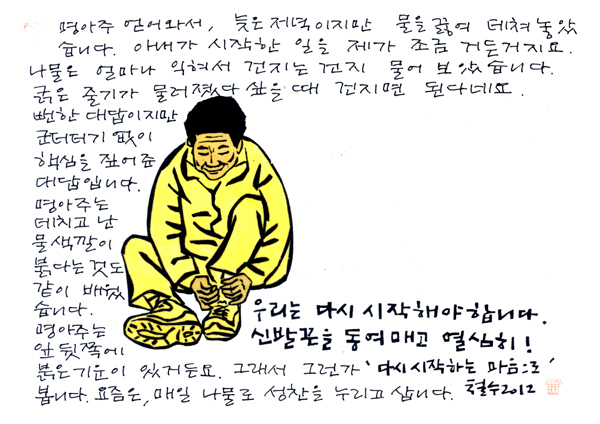 명아주 얻어와서, 늦은저녁이지만 물을끓여 데쳐놓았
습니다. 아내가 시작한 일을 제가 조금 거든거지요.
나물은 얼마나 익혀서 건지는건지 물어 보았습니다.
굵은 줄기가 물러졌다 싶을때 건지면 된다네요.
뻔한 대답이지만
군더더기 없이
핵심을 짚어준
대답입니다.
명아주는
데치고 난
물색깔이
붉다는 것도
같이 배웠
습니다.
명아주는
잎 뒷쪽에
붉은기운이 있거든요. 그래서 그런가
우리는 다시 시작해야합니다.
신발끈을 동여매고 열심히!
'다시시작하는 마음으로'
봅니다. 요즘은, 매일 나물로 성찬을 누리고 삽니다. 철수2012